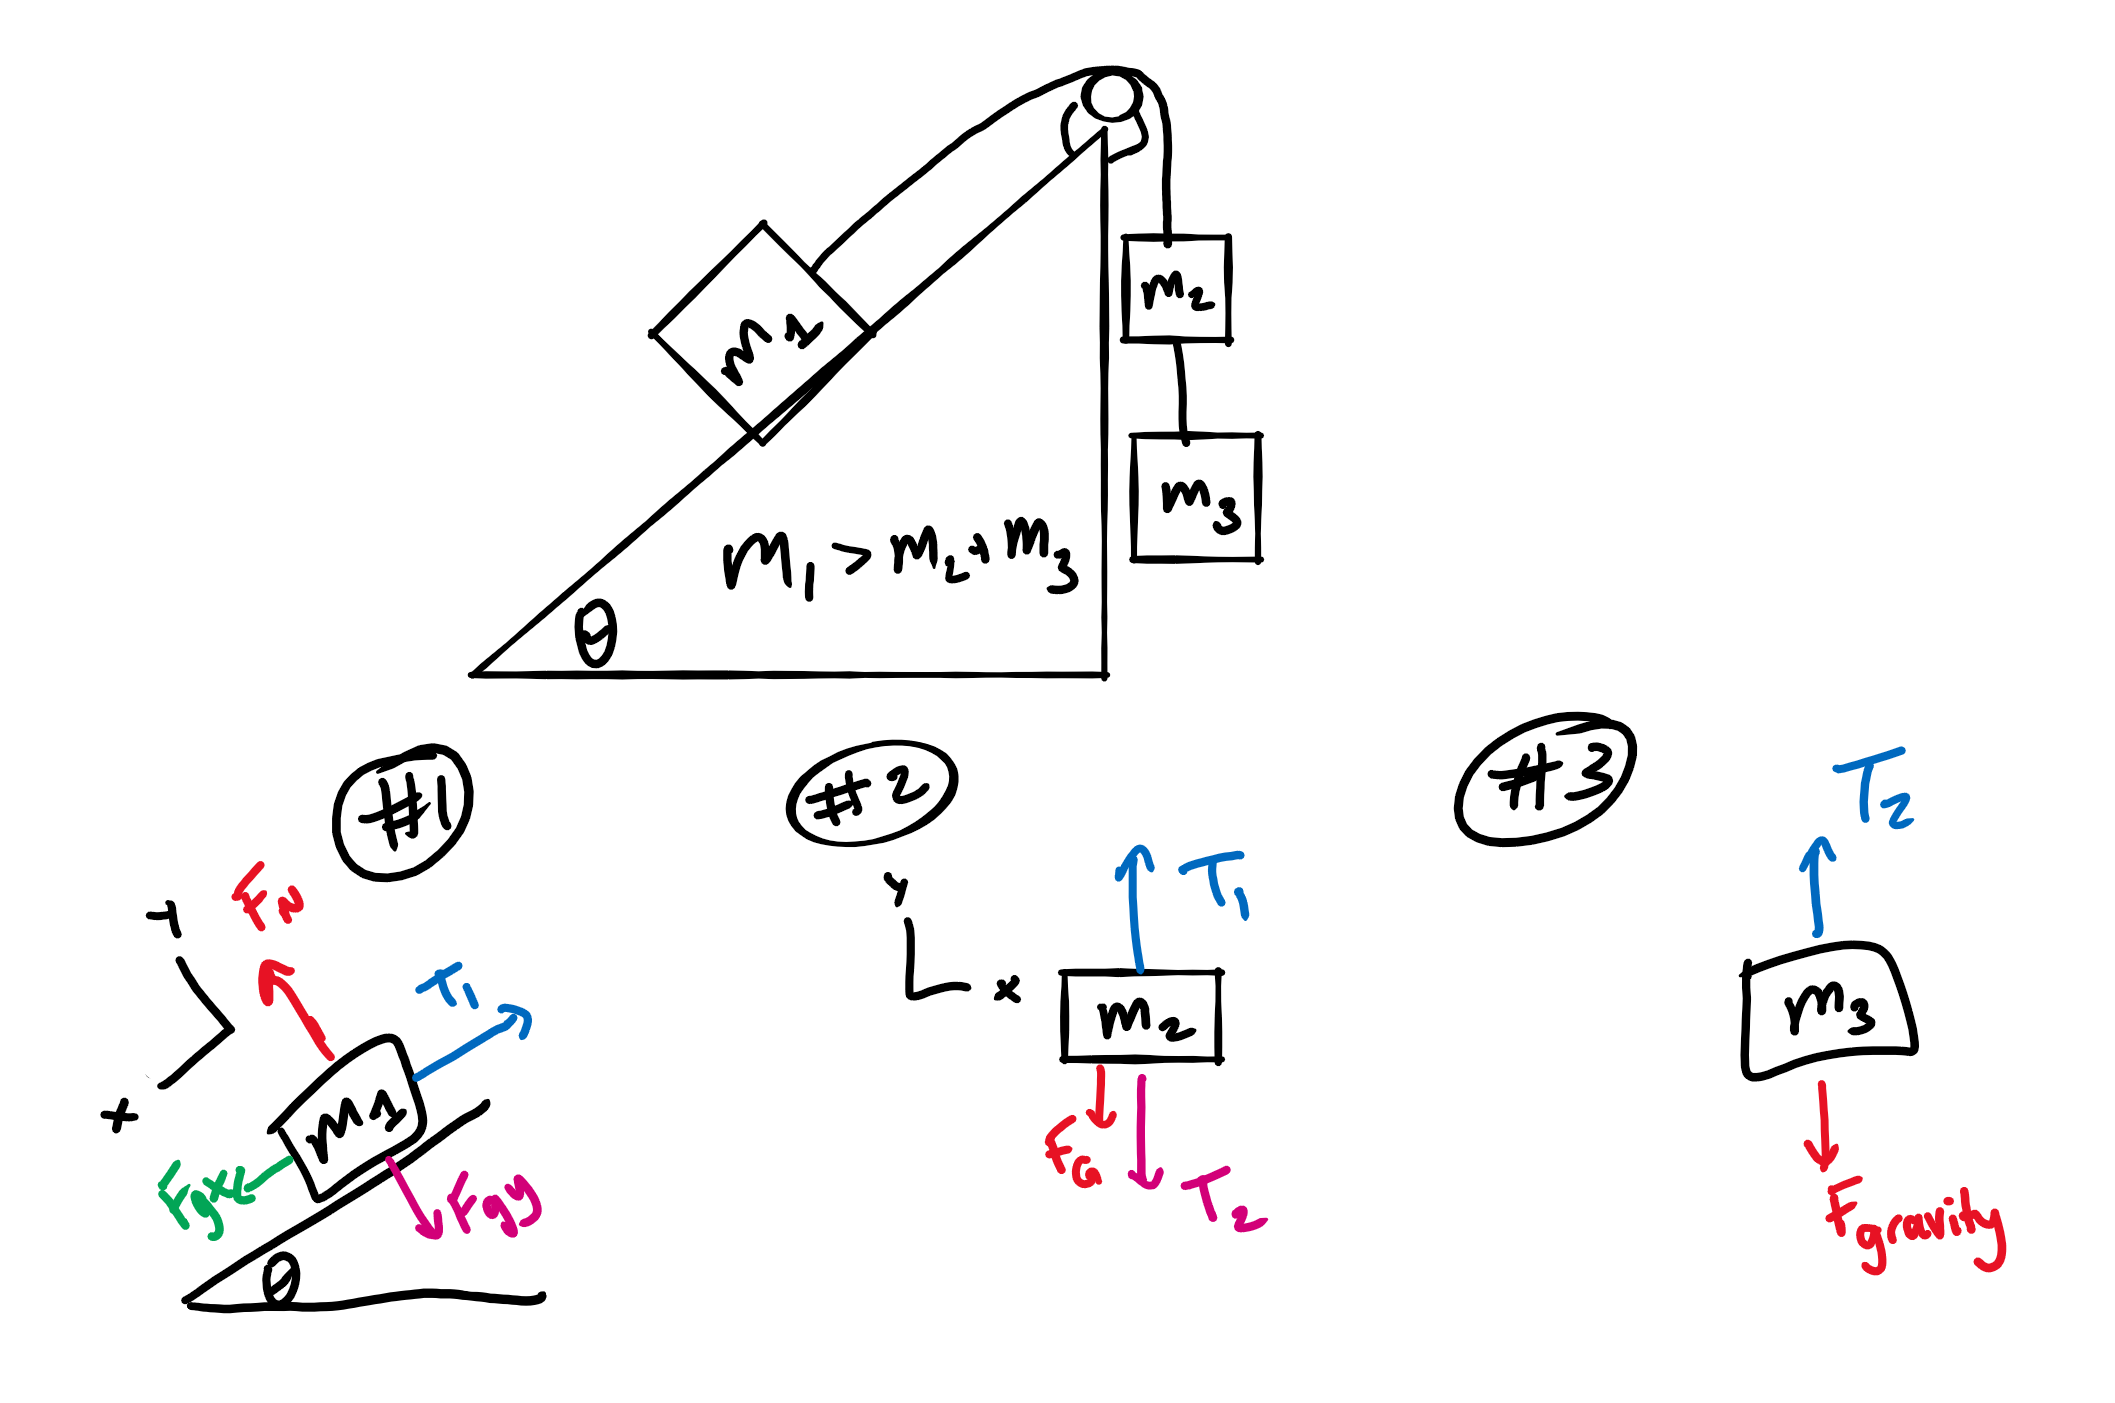 m1
m2
m3
m1 > m2 + m3
θ
#1
#2
#3
Y
x
FN
T1
m1
Fgx
Fgy
θ
y
x
T1
m2
FG
T2
T2
m3
Fgravity